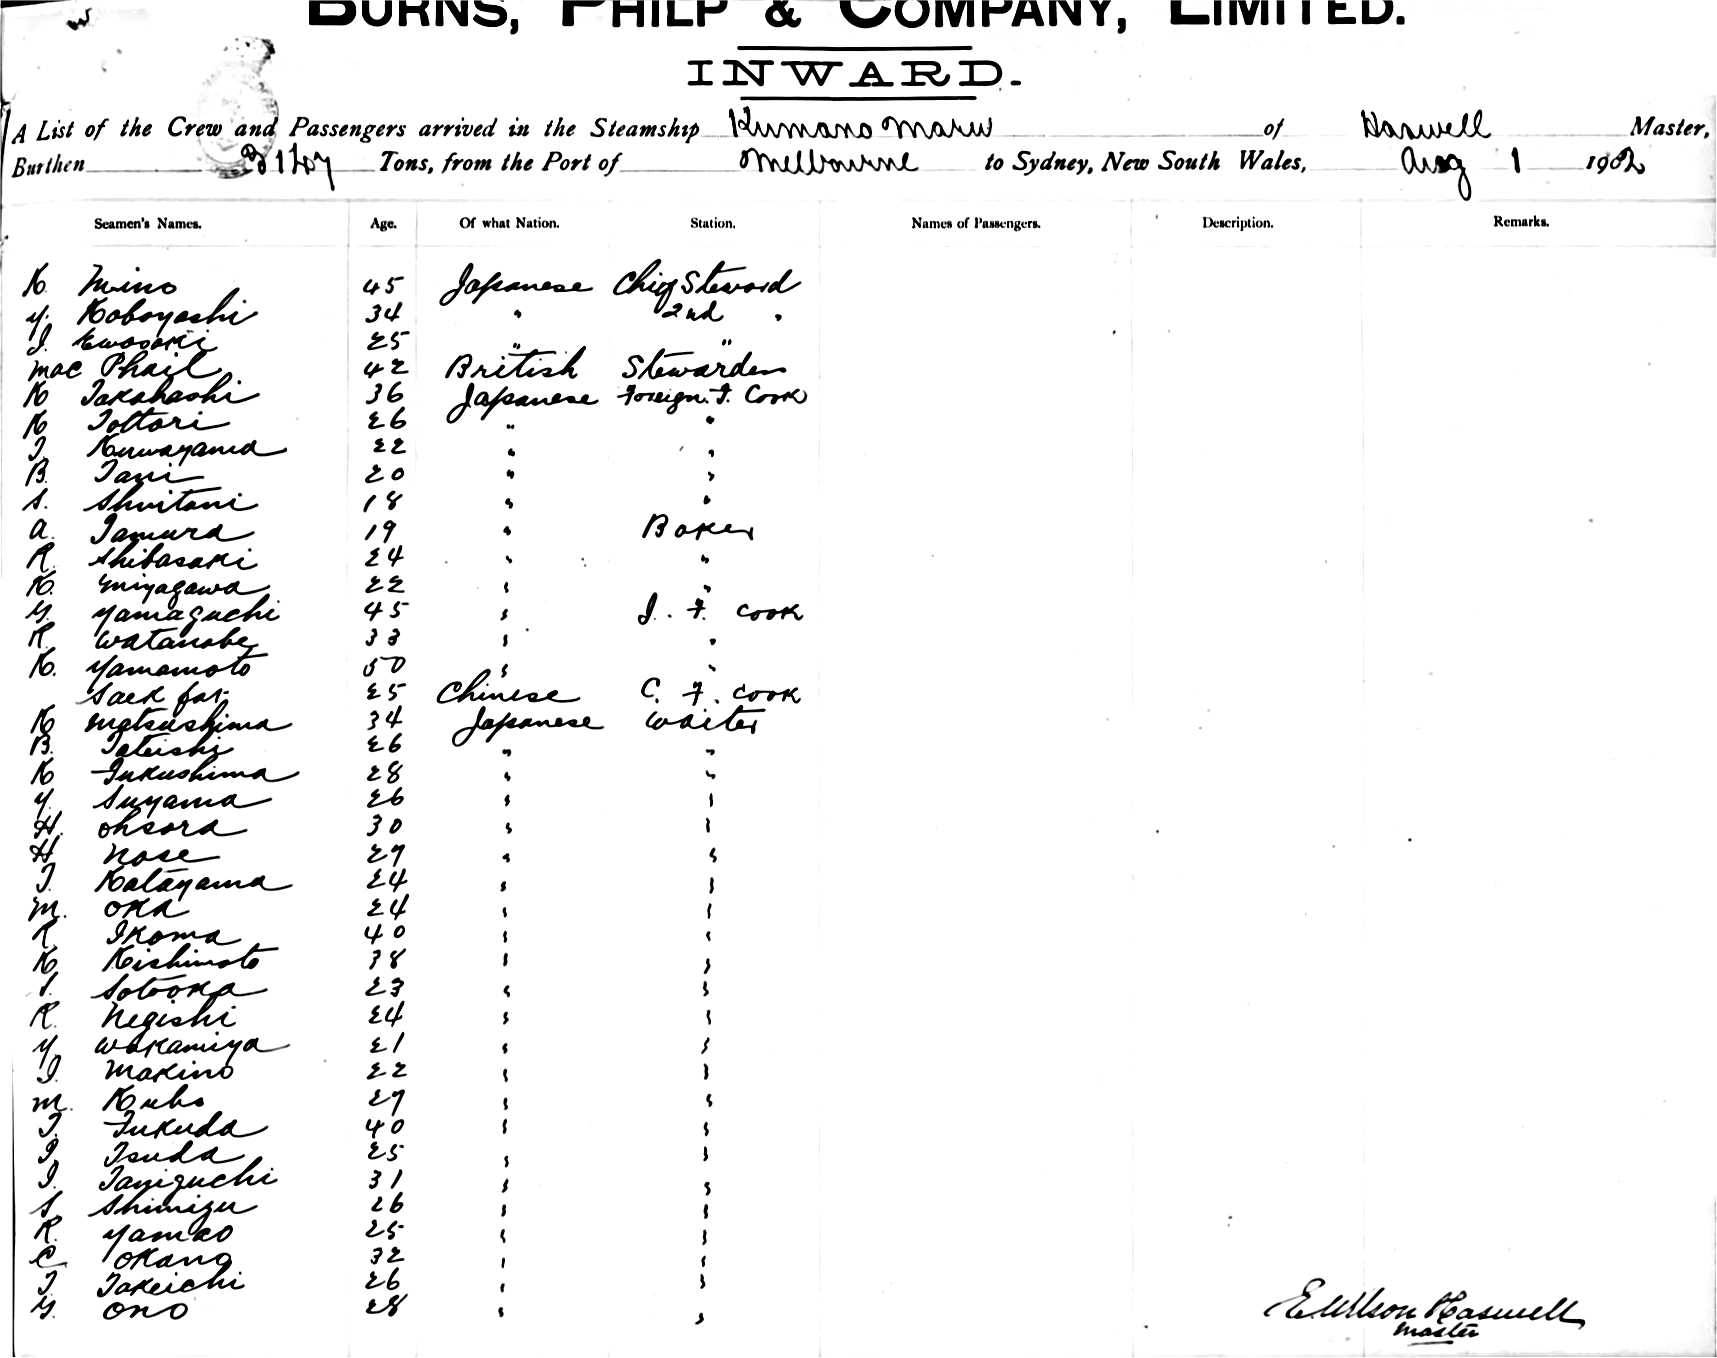 BURNS, PHILP & COMPANY, LIMITED.
INWARD.
A List of the Crew and Passengers arrived in the Steamship Kumano Maru of Haswell Master,
Burthen Tons, from the Port of Melbourne to Sydney, New South Wales, Aug 1 1902
Seamen's Names. Age. Of what Nation. Station. Names of Passengers. Description. Remarks.
K Mino 45 Japanese Chief Steward
Y. Kobayashi 34 " 2nd "
I. Ewasaki 25 " "
Mac Phail 42 British Stewardess
K Takahashi 36 Japanese Foreign. F. Cook
K Tottori 26 " "
T. Kuwayama 22 " "
B. Tani 20 " "
S. 18 " "
A. Tamura 19 " Baker
R. Shibasaki 24 " "
K. Miyagawa 22 " "
G. Yamaguchi 45 " J. F. Cook
R. Watanabe 33 " "
K. Yamamoto 50 " "
25 Chinese C. F. Cook
K Matsushima 34 Japanese Waiter
B. Tateishi 26 " "
K Fukushima 28 " "
Y. Suyama 26 " "
H. Ohsora 30 " "
H Nose 27 " "
T. Katayama 24 " "
M. Oka 24 " "
R Ikoma 40 " "
K Kishimoto 38 " "
S. Sotooka 23 " "
R. Negishi 24 " "
Y Wakamiya 21 " "
I. Makino 22 " "
M. Kubo 27 " "
T. Fukuda 40 " "
I. Tsuda 25 " "
I. Taniguchi 31 " "
S. Shimizu 26 " "
R. Yamao 25 " "
C. Okano 32 " "
T Takeichi 26 " "
G. Ono 28 " "
E Wilson Haswell
Master